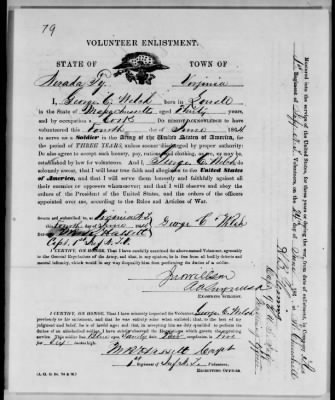 79
VOLUNTEER ENLISTMENT.
STATE OF TOWN OF
Nevada Ty. Virginia
I, George C. Welch born in Lowell
in the State of Massachusetts aged thirty years,
and by occupation a Cook DO HEREBY ACKNOWLEDGE to have
volunteered this fourth day of June 1864
to serve as a Soldier in the Army of the United States of America, for the
period of THREE YEARS, unless sooner discharged by proper authority:
Do also agree to accept such bounty, pay, rations, and clothing, as are, or may be,
established by law for volunteers. And I, George C. Welch do
solemnly swear, that I will bear true faith and allegiance to the United States
of America, that I will serve them honestly and faithfully against all their
enemies or opposers whomsoever; and that I will observe and obey the
orders of the President of the United States, and the orders of the officers
appointed over me, according to the Rules and Articles of War.
Sworn and subscribed to, at Virginia N.T.
this fourth day of June 1864
George C. Welch
Capt. 1st Inf. N.T.
I CERTIFY, ON HONOR, That I have carefully examined the above named Volunteer, agreeably
to the General Regulations of the Army, and that, in my opinion, he is free from all bodily defects and
mental infirmity, which would in any way disqualify him from performing the duties of a soldier.
EXAMINING SURGEON.
I CERTIFY, ON HONOR, That I have minutely inspected the Volunteer George C. Welch
previously to his enlistment, and that he was entirely sober when enlisted; that, to the best of my
judgment and belief, he is of lawful age; and that, in accepting him as duly qualified to perform the
duties of an able-bodied soldier, I have strictly observed the Regulations which govern the recruiting
service. This soldier has Blue eyes, Sandy hair, Fair complexion, is Five
feet inches high.
1st Regiment of Inf. N.T. Volunteers,
RECRUITING OFFICER.
(A. G. O. No. 74 & 76.)
Mustered into the service of the United States, for three years or during the war, from date of enlistment, in Company
1st Regiment of Volunteers, on the day of 186 , at Ft. Churchill